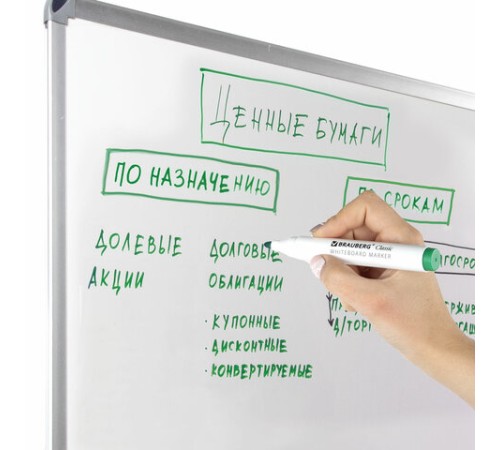 ЦЕННЫЕ БУМАГИ
ПО НАЗНАЧЕНИЮ
СРОКАМ
ДОЛЕВЫЕ
АКЦИИ
ДОЛГОВЫЕ
ОБЛИГАЦИИ
· КУПОННЫЕ
· ДИСКОНТНЫЕ
· КОНВЕРТИРУЕМЫЕ
Д/ТОРГ
BRAUBERG Classic
WHITEBOARD MARKER